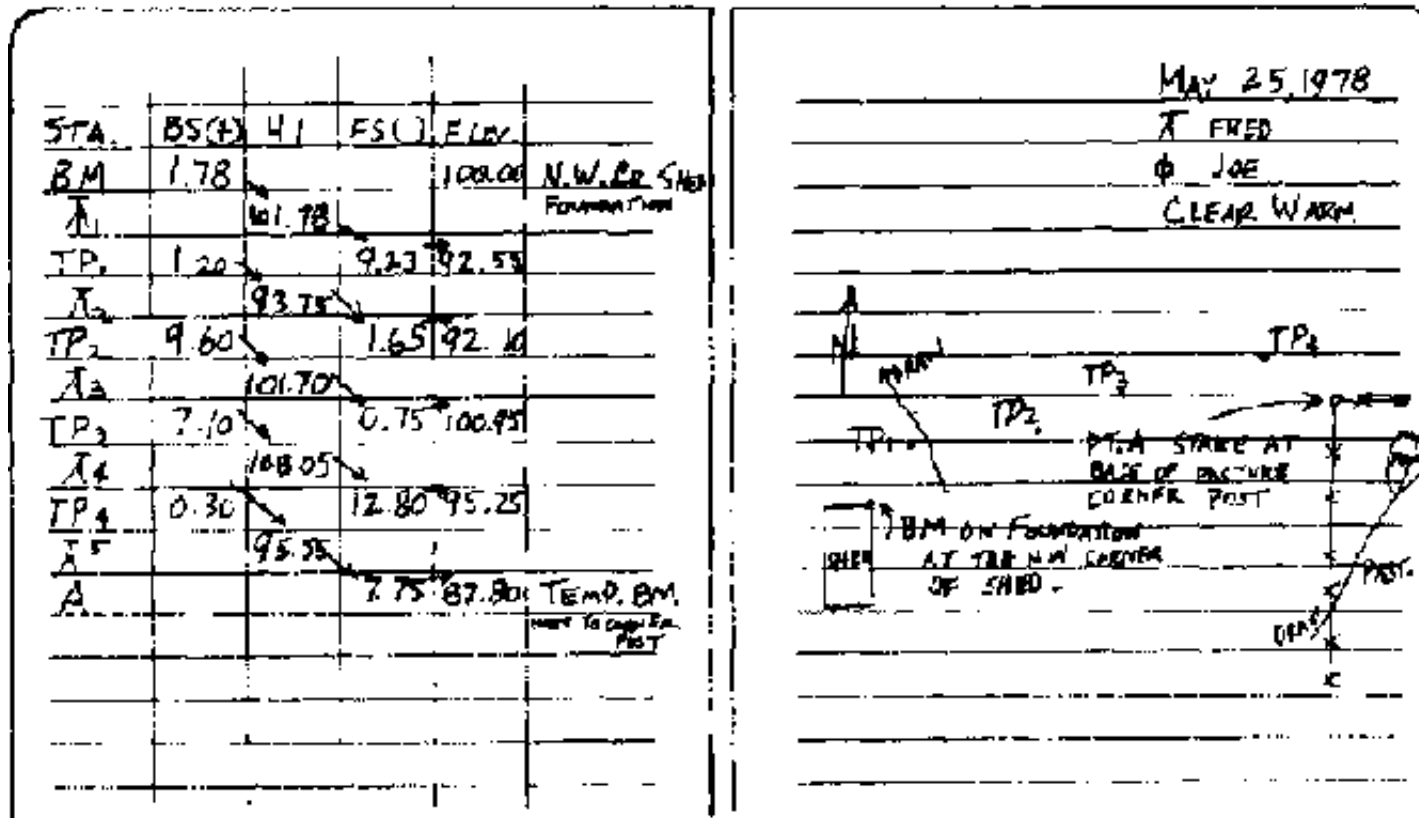 STA. BS(+) HI FS( ) ELEV.
BM 1.78 100.00 N.W. Cr SHED
FOUNDATION
⊼1 101.78
TP1 1.20 9.23 92.55
⊼2 93.75
TP2 9.60 1.65 92.10
⊼3 101.70
TP3 7.10 0.75 100.95
⊼4 108.05
TP4 0.30 12.80 95.25
⊼5 95.55
A 7.75 87.80 TEMP. BM.
NEXT TO CORNER
POST
MAY 25, 1978
⊼ FRED
ϕ JOE
CLEAR WARM
N
TP4
TP3
TP2
TP1
PT. A STAKE AT
BASE OF PASTURE
CORNER POST
BM ON FOUNDATION
AT THE NW CORNER
OF SHED.
SHED
PAST.